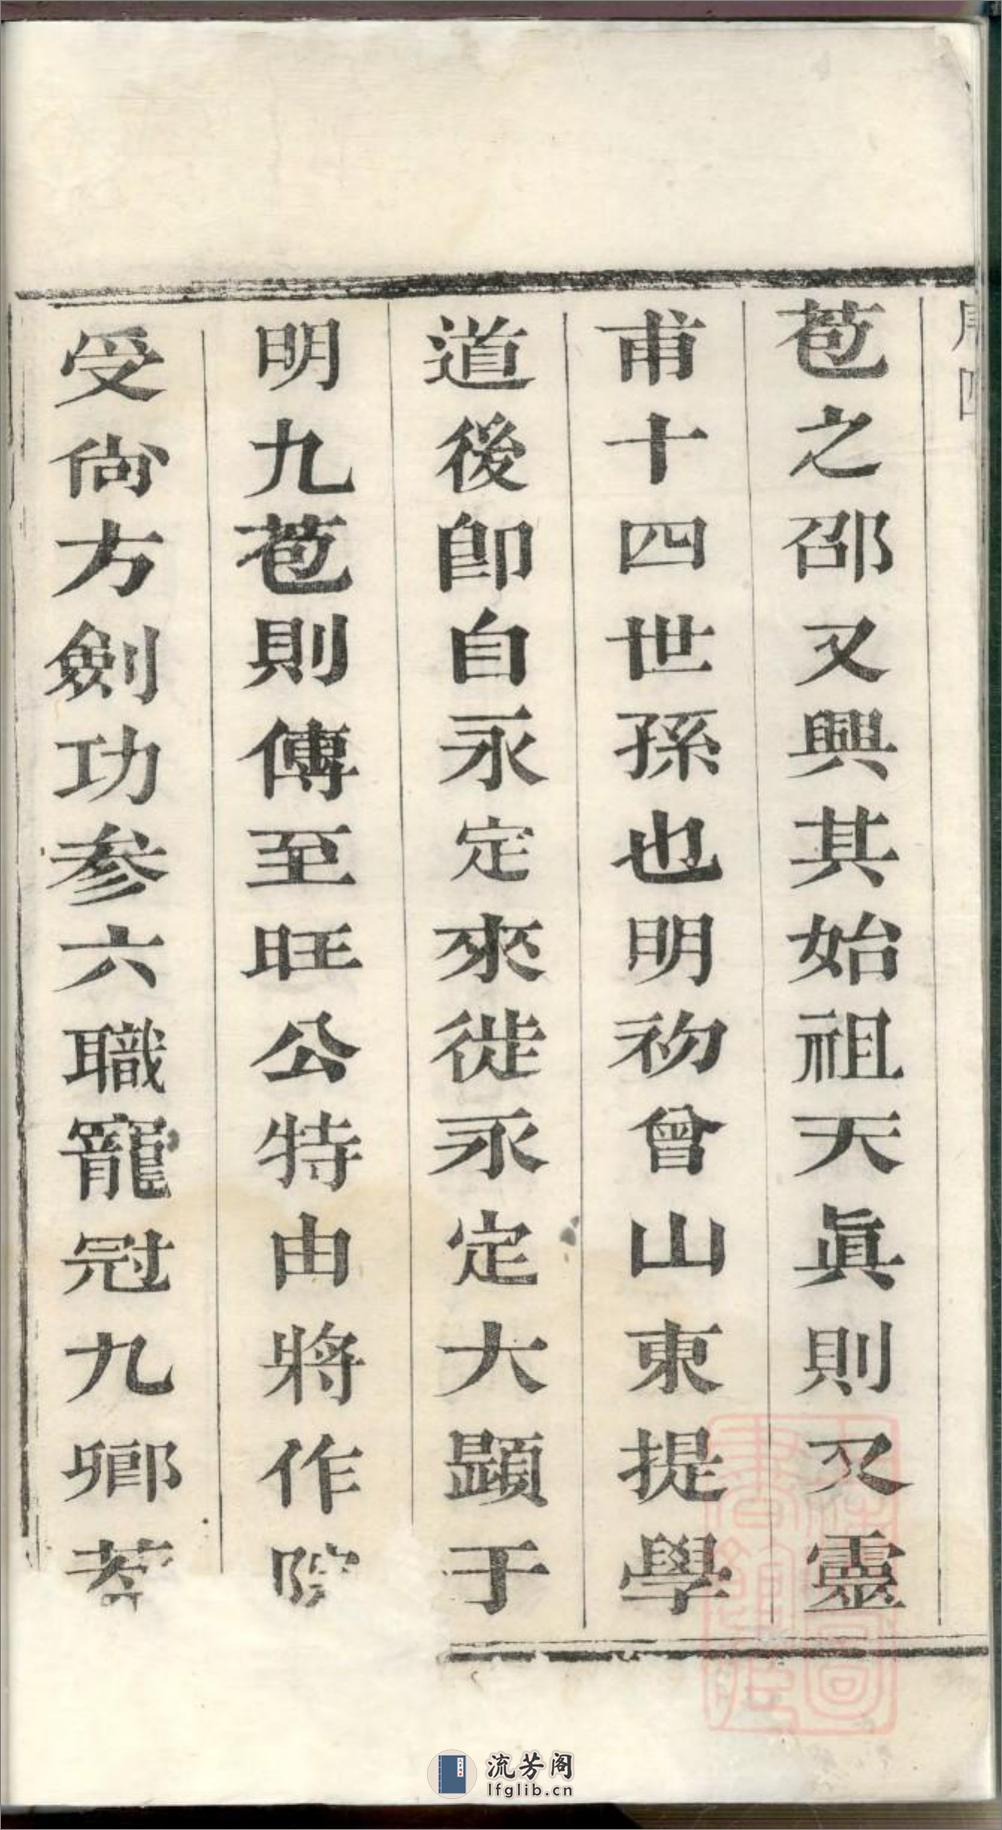 苞之邵又興其始祖天眞則又靈
甫十四世孫也明初曾山東提學
道後卽自永定來徙永定大顯于
明九苞則傳至旺公特由將作院
受尙方劍功參六職寵冠九卿
流芳阁
lfglib.cn